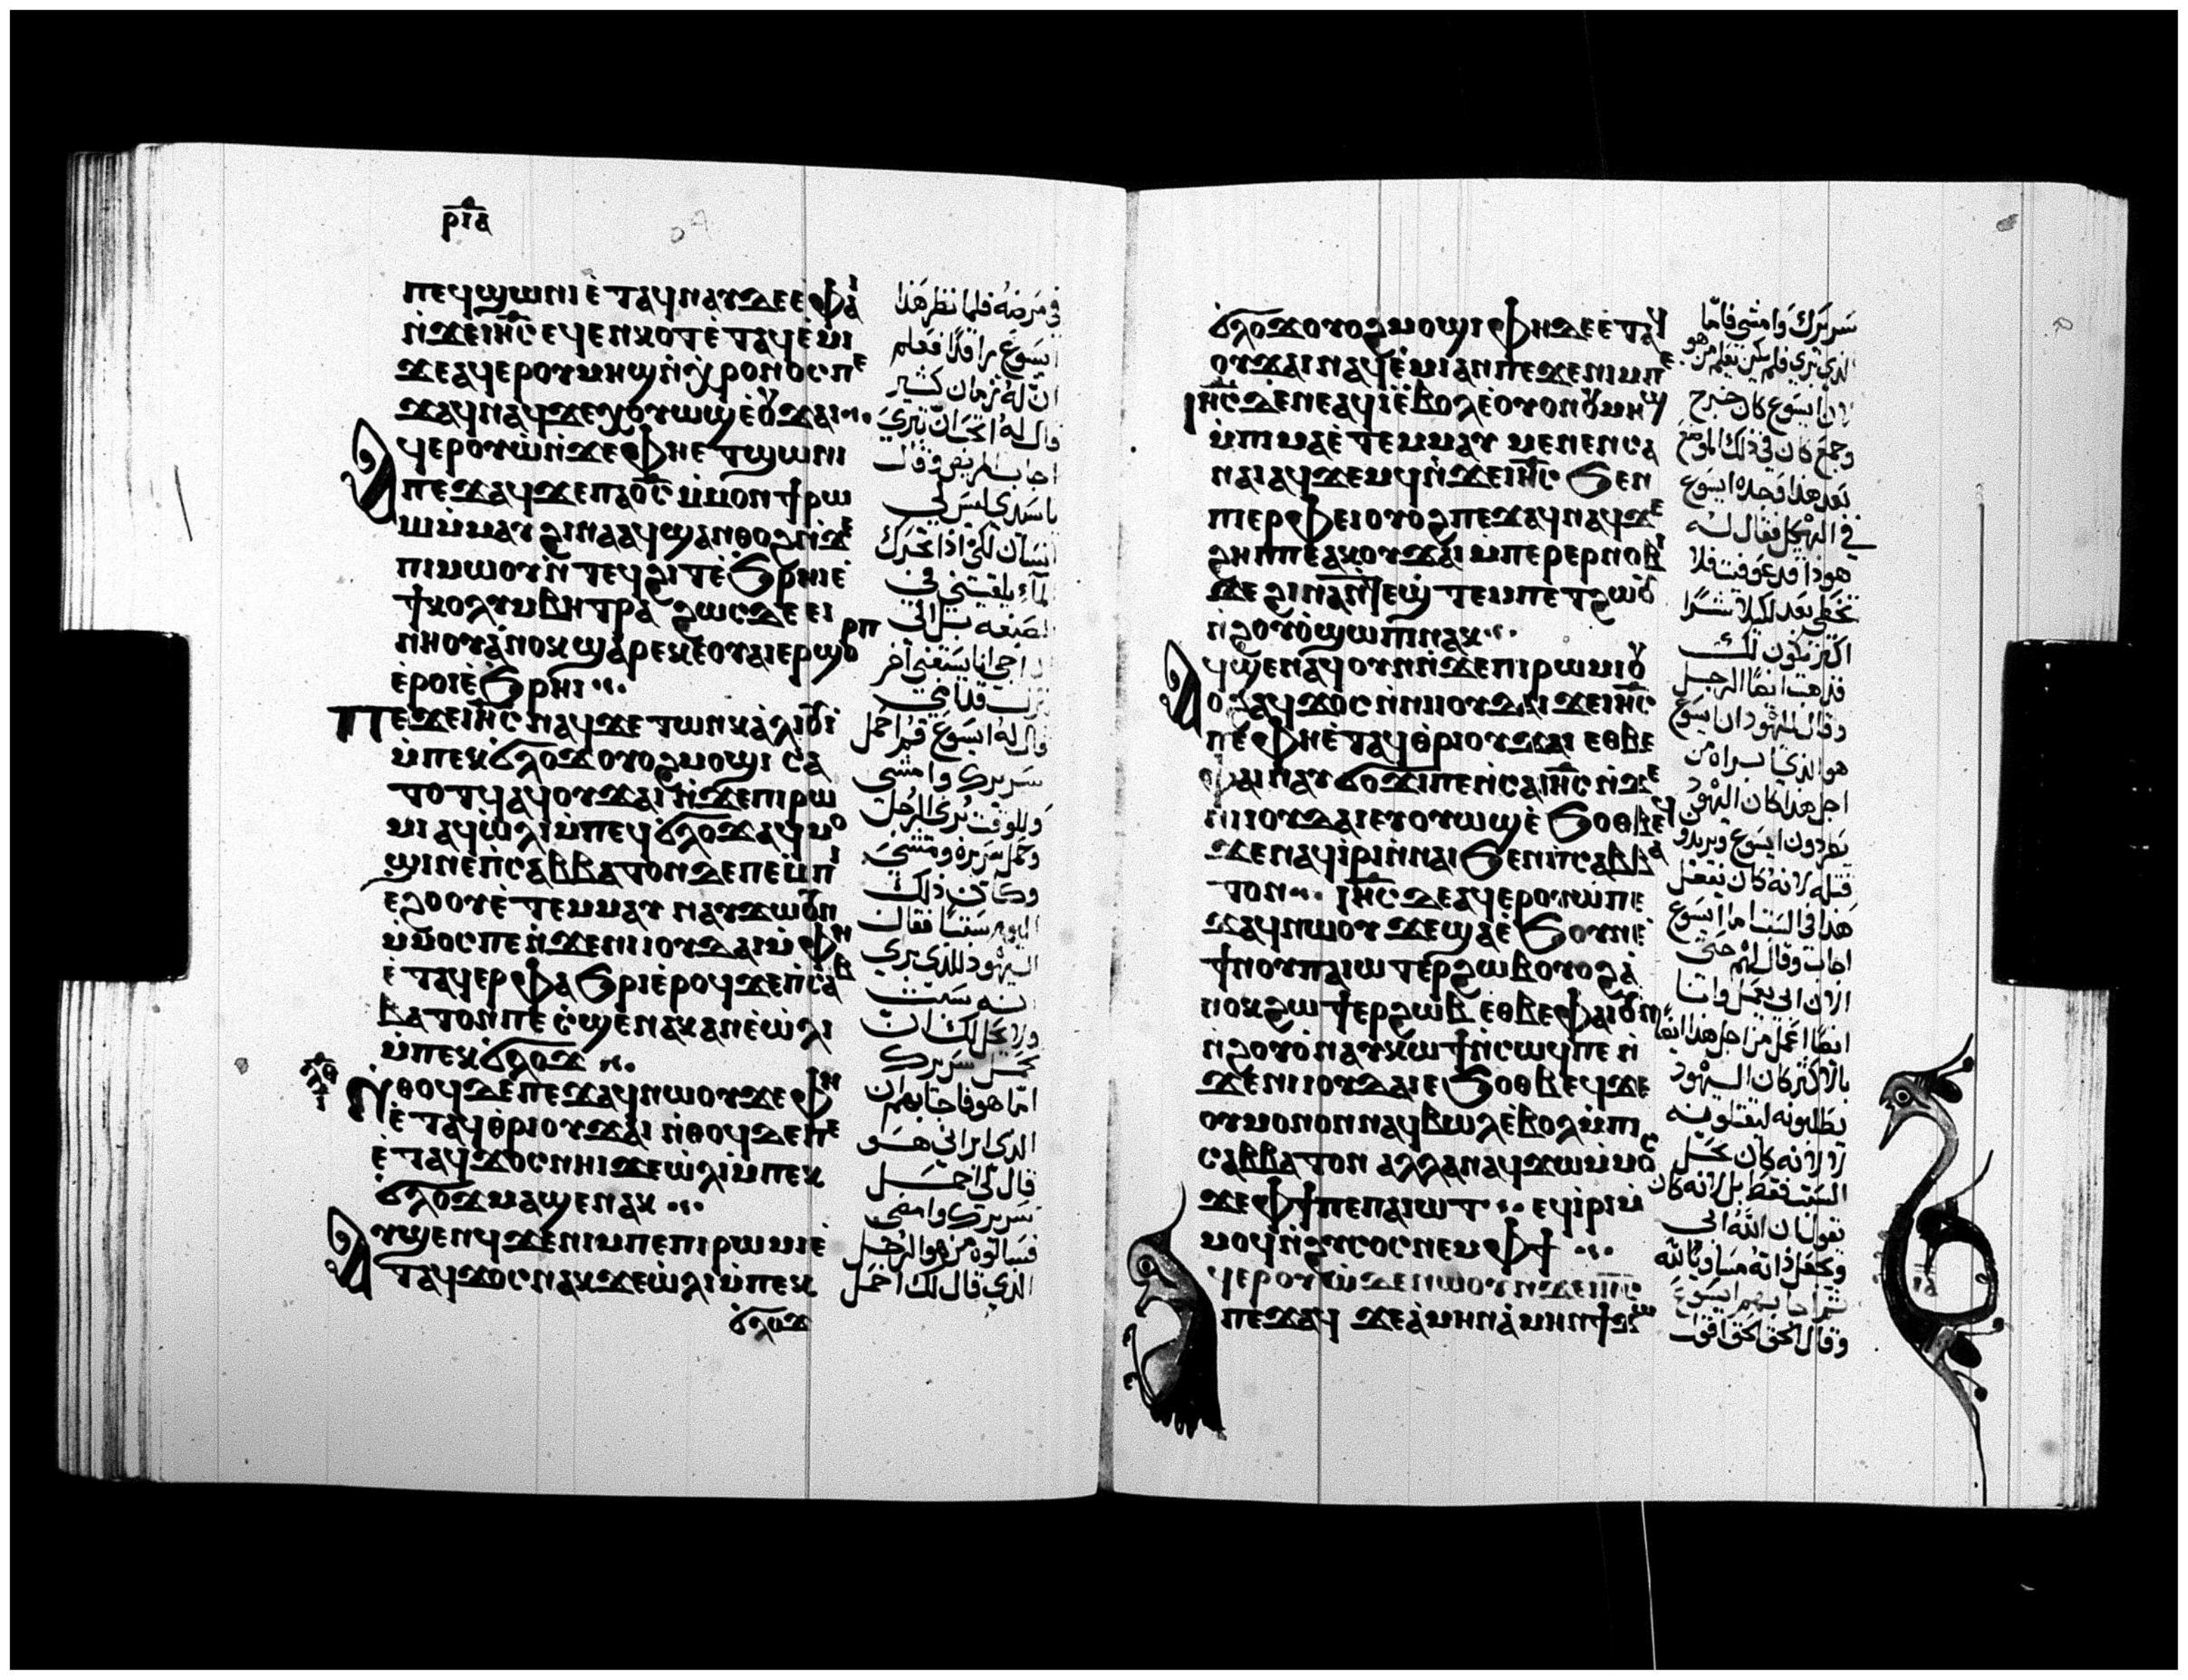 ⲣⲓⲁ
ⲡⲉϥϣⲱⲛⲓ ⲉⲧⲁϥⲛⲁⲩ ⲇⲉ ⲉⲫⲁⲓ
ⲛ̇ϫⲉ ⲓⲏ̅ⲥ ⲉϥⲉⲛⲕⲟⲧ ⲉ̇ⲧⲁϥⲉ̇ⲙⲓ
ϫⲉ ⲁϥⲉⲣ ⲟⲩⲙⲏϣ ⲛ̇ⲭⲣⲟⲛⲟⲥ ⲡⲉ
ϫⲁϥ ⲛⲁϥ ϫⲉ ⲭⲟⲩⲱϣ ⲉ̇ⲟⲩϫⲁⲓ
ⲁϥⲉⲣⲟⲩⲱ̇ ⲛ̇ϫⲉ ⲫⲏⲉⲧϣⲱⲛⲓ
ⲡⲉϫⲁϥ ϫⲉ ⲡⲁⲟ̅ⲥ ⲙ̇ⲙⲟⲛϯ ⲣⲱ
ⲙⲓ ⲙ̇ⲙⲁⲩ ϩⲓⲛⲁ ⲁϥϣⲁⲛⲑⲟϩ ⲛ̇ϫⲉ
ⲡⲓⲙⲱⲟⲩ ⲛ̇ⲧⲉϥϩⲓⲧ ⲉ̇ϧⲣⲏⲓ ⲉ̇
ϯⲕⲟⲗⲩⲙⲃⲏⲑⲣⲁ ϩⲱⲥ ⲇⲉ ⲉⲓ
ⲛⲏⲟⲩ ⲁ̇ⲛⲟⲕ ϣⲁⲣⲉ ⲕⲉⲟⲩⲁⲓ ⲉⲣϣⲟⲣⲡ
ⲉ̇ⲣⲟⲓ ⲉ̇ϧⲣⲏⲓ
ⲡⲉϫⲉ ⲓⲏ̅ⲥ ⲛⲁϥ ϫⲉ ⲧⲱⲛⲕ ⲁ̇ⲗⲓⲟⲩⲓ
ⲙ̇ⲡⲉⲕϭⲗⲟϫ ⲟⲩⲟϩ ⲙⲟϣⲓ ⲥⲁ
ⲧⲟⲧϥ ⲁϥⲟⲩϫⲁⲓ ⲛ̇ϫⲉ ⲡⲓⲣⲱ
ⲙⲓ ⲁϥⲱ̇ⲗⲓ ⲙ̇ⲡⲉϥϭⲗⲟϫ ⲁϥⲙⲟ
ϣⲓ ⲛⲉ ⲡ̇ⲥⲁⲃⲃⲁⲧⲟⲛ ⲇⲉ ⲡⲉ ⲙ̇ⲡⲓ
ⲉϩⲟⲟⲩ ⲉ̇ⲧⲉⲙⲙⲁⲩ ⲛⲁⲩϫⲱⲟⲩⲛ
ⲙ̇ⲙⲟⲥ ⲡⲉ ⲛ̇ϫⲉ ⲛⲓⲓⲟⲩⲇⲁⲓ ⲙ̇ⲫⲏ
ⲉ̇ⲧⲁϥⲉⲣⲫⲁϧⲣⲓ ⲉ̇ⲣⲟϥ ϫⲉ ⲡ̇ⲥⲁⲃ
ⲃⲁⲧⲟⲛ ⲡⲉ ⲥ̇ϣⲉ ⲛⲁⲕ ⲁⲛ ⲉ̇ⲱ̇ⲗⲓ
ⲙ̇ⲡⲉⲕϭⲗⲟϫ
ⲛ̇ⲑⲟϥ ⲇⲉ ⲡⲉϫⲁϥ ⲛⲱⲟⲩ ϫⲉ ⲫⲏ
ⲉ̇ⲧⲁϥⲑⲣⲓⲟⲩϫⲁⲓ ⲛ̇ⲑⲟϥ ϫⲉ ⲡⲉ
ⲉ̇ⲧⲁϥϫⲟⲥ ⲛⲏⲓ ϫⲉ ⲱ̇ⲗⲓ ⲙ̇ⲡⲉⲕ
ϭⲗⲟϫ ⲙⲁϣⲉ ⲛⲁⲕ
ⲁⲩϣⲉⲛϥ ϫⲉ ⲛⲓⲙ ⲡⲉ ⲡⲓⲣⲱⲙⲓ ⲉ̇
ⲧⲁϥϫⲟⲥ ⲛⲁⲕ ϫⲉ ⲱ̇ⲗⲓ ⲙ̇ⲡⲉⲕ
ϭⲗⲟϫ
في مرضه فلما نظر هذا
ايسوع راقدًا فعلم
ان له زمان كثير
قال له اتحب ان تبري
اجاب المريض وقال
يا سيدي ليس لي
انسان لكي اذا تحرك
الماء يلقيني في
قال له ايسوع قم احمل
سريرك وامشي
وللوقت بري الرجل
وحمل سريره ومشي
وكان ذلك
اليوم سبتًا فقال
اليهود للذي بري
انه سبت
ولا يحل لك ان
تحمل سريرك
اما هو فاجابهم ان
الذي ابراني هو
قال لي احمل
سريرك وامضي
فسالوه من هو الرجل
الذي قال لك احمل
ϭⲗⲟϫ ⲟⲩⲟϩ ⲙⲟϣⲓ ⲫⲏ ⲇⲉ ⲉ̇ⲧⲁϥ
ⲟⲩϫⲁⲓ ⲛⲁϥⲉ̇ⲙⲓ ⲁⲛ ⲡⲉ ϫⲉ ⲛⲓⲙ ⲡⲉ
ⲓⲏ̅ⲥ ⲇⲉ ⲛⲉ ⲁϥⲓ̇ ⲉ̇ⲃⲟⲗ ⲉ̇ⲟⲩⲟⲛ ⲟⲩⲙⲏϣ
ⲙ̇ⲡⲓⲙⲁ ⲉ̇ⲧⲉⲙⲙⲁⲩ ⲙⲉⲛⲉⲛⲥⲁ
ⲛⲁⲓ ⲁϥϫⲉⲙϥ ⲛ̇ϫⲉ ⲓⲏ̅ⲥ ϧⲉⲛ
ⲡⲓⲉⲣⲫⲉⲓ ⲟⲩⲟϩ ⲡⲉϫⲁϥ ⲛⲁϥ ϫⲉ
ϩⲏⲡⲡⲉ ⲁⲕⲟⲩϫⲁⲓ ⲙ̇ⲡⲉⲣⲉⲣⲛⲟⲃⲓ
ϫⲉ ϩⲓⲛⲁ ⲛ̇ⲧⲉϣⲧⲉⲙ ⲡⲉⲧϩⲱⲟⲩ
ⲛ̇ϩⲟⲩⲟ̇ ϣⲱⲡⲓ ⲛⲁⲕ
ⲁϥϣⲉ ⲛⲁϥ ⲟⲩⲛ ⲛ̇ϫⲉ ⲡⲓⲣⲱⲙⲓ ⲟⲩ
ⲟϩ ⲁϥϫⲟⲥ ⲛ̇ⲛⲓⲓⲟⲩⲇⲁⲓ ϫⲉ ⲓⲏ̅ⲥ
ⲡⲉ ⲫⲏⲉ̇ⲧⲁϥⲑⲣⲓⲟⲩϫⲁⲓ ⲉⲑⲃⲉ
ⲫⲁⲓ ⲛⲁⲩϭⲟϫⲓ ⲡⲉ ⲛ̇ⲥⲁ ⲓⲏ̅ⲥ ⲛ̇ϫⲉ
ⲛⲓⲓⲟⲩⲇⲁⲓ ⲉⲩⲟⲩⲱϣ ⲉ̇ϧⲟⲑⲃⲉϥ
ϫⲉ ⲛⲁϥⲓ̇ⲣⲓ ⲛ̇ⲛⲁⲓ ϧⲉⲛ ⲡ̇ⲥⲁⲃⲃⲁ
ⲧⲟⲛ ⲓⲏ̅ⲥ ⲇⲉ ⲁϥⲉⲣⲟⲩⲱ̇ ⲡⲉ
ϫⲁϥ ⲛⲱⲟⲩ ϫⲉ ϣⲁ ⲉ̇ϧⲟⲩⲛ ⲉ̇
ϯⲛⲟⲩ ⲡⲁⲓⲱⲧ ⲉⲣϩⲱⲃ ⲟⲩⲟϩ ⲁ̇
ⲛⲟⲕ ϩⲱ ϯⲉⲣϩⲱⲃ ⲉⲑⲃⲉ ⲫⲁⲓ ⲟⲩⲛ
ⲛ̇ϩⲟⲩⲟ̇ ⲛⲁⲩⲕⲱϯ ⲛ̇ⲥⲱϥ ⲡⲉ ⲛ̇
ϫⲉ ⲛⲓⲓⲟⲩⲇⲁⲓ ⲉ̇ϧⲟⲑⲃⲉϥ ϫⲉ
ⲟⲩⲙⲟⲛⲟⲛ ⲛⲁϥⲃⲱⲗ ⲉ̇ⲃⲟⲗ ⲙ̇ⲡⲓ
ⲥⲁⲃⲃⲁⲧⲟⲛ ⲁⲗⲗⲁ ⲛⲁϥϫⲱ ⲙ̇ⲙⲟⲥ
ϫⲉ ⲫϯ ⲡⲉ ⲡⲁⲓⲱⲧ ⲉϥⲓ̇ⲣⲓ ⲙ̇
ⲙⲟϥ ⲛ̇ϩⲩⲥⲟⲥ ⲛⲉⲙ ⲫϯ
ϥⲉⲣⲟⲩⲱ̇ ⲇⲉ ⲛⲱⲟⲩ ⲛ̇ϫⲉ ⲓⲏ̅ⲥ
ⲡⲉϫⲁϥ ϫⲉ ⲁ̇ⲙⲏⲛ ⲁ̇ⲙⲏⲛ ϯϫⲱ
سريرك وامشي فاما
الذي بري فلم يكن يعلم من هو
لان ايسوع كان خرج
وجمع كان في ذلك الموضع
بعد هذا وجده ايسوع
في الهيكل فقال له
هوذا قد عوفيت فلا
تخطي بعد لكيلا شرًا
اكثر يكون لك
فذهب ايضًا الرجل
وقال لليهود ان ايسوع
هو الذي ابراه من
اجل هذا كان اليهود
يطردون ايسوع ويريدوا
قتله لانه كان يفعل
هذا في السبت اما ايسوع
اجاب وقال لهم حتى
الان ابي يعمل وانا
ايضًا اعمل من اجل هذا ايضًا
بالاكثر كان اليهود
يطلبونه ليقتلونه
لا لانه كان يحل
السبت فقط بل لانه كان
يقول ان الله ابي
ويجعل ذاته مساويًا لله
ثم اجابهم ايسوع
وقال الحق الحق اقول